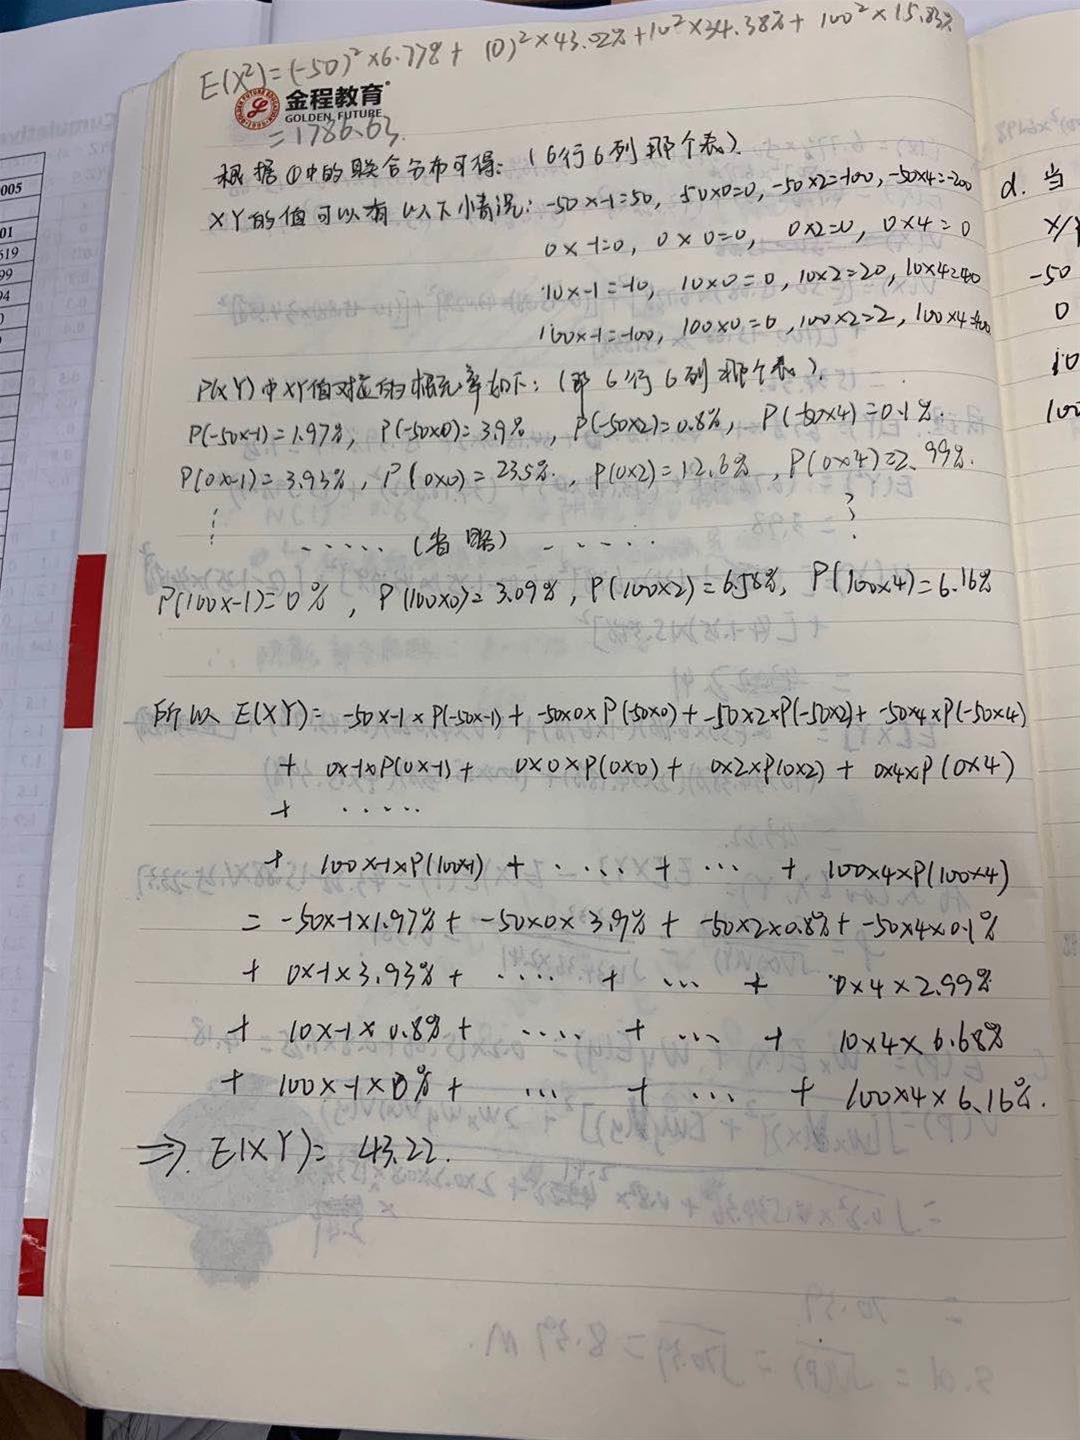 E(X²)=(-50)²×6.77%+ (0)²×43.02%+10²×34.38%+ 100²×15.83%
金程教育
GOLDEN FUTURE
=1786.63.
根据①中的联合分布可得: (6行6列那个表).
XY的值可以有以下情况: -50×-1=50, 50×0=0, -50×2=-100, -50×4=-200
0×-1=0, 0×0=0, 0×2=0, 0×4=0
10×-1=-10, 10×0=0, 10×2=20, 10×4=40
100×-1=-100, 100×0=0, 100×2=2, 100×4=400
P(XY)中XY值对应的概率如下: (即6行6列那个表).
P(-50×-1)=1.97%, P(-50×0)=3.9%, P(-50×2)=0.8%, P(-50×4)=0.1%.
P(0×-1)=3.93%, P(0×0)=23.5%, P(0×2)=12.6%, P(0×4)=2.99%.
..... (省略) ......
P(100×-1)=0%, P(100×0)=3.09%, P(100×2)=6.58%, P(100×4)=6.16%
所以 E(XY)= -50×-1×P(-50×-1)+ -50×0×P(-50×0)+ -50×2×P(-50×2)+ -50×4×P(-50×4)
+ 0×-1×P(0×-1)+ 0×0×P(0×0)+ 0×2×P(0×2)+ 0×4×P(0×4)
+ .....
+ 100×-1×P(100×-1) + ..... + ... + 100×4×P(100×4)
= -50×-1×1.97%+ -50×0×3.9%+ -50×2×0.8%+ -50×4×0.1%
+ 0×-1×3.93%+ .... + ... + 0×4×2.99%
+ 10×-1×0.8%+ .... + ... + 10×4×6.68%
+ 100×-1×0%+ ... + ... + 100×4×6.16%.
⇒. E(XY)= 43.22.
005
01
519
99
94
d. 当
X/
-50
0
10
100